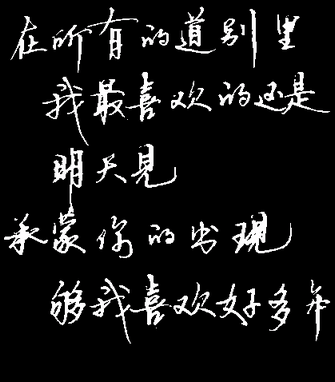 在所有的道别里
我最喜欢的还是
明天見
承蒙你的出现
够我喜欢好多年